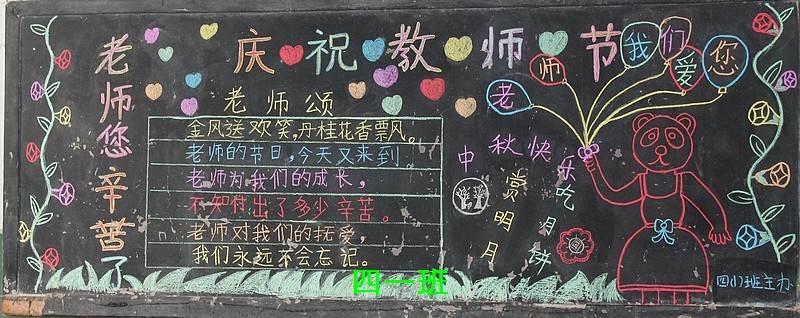 庆祝教师节
老师您辛苦了
老师我们爱您
老师颂
金风送欢笑,丹桂花香票风。
老师的节日,今天又来到。
老师为我们的成长,
不知付出了多少辛苦。
老师对我们的抚爱,
我们永远不会忘记。
中秋快乐
赏明月
吃月饼
四(1)班主办
四一班